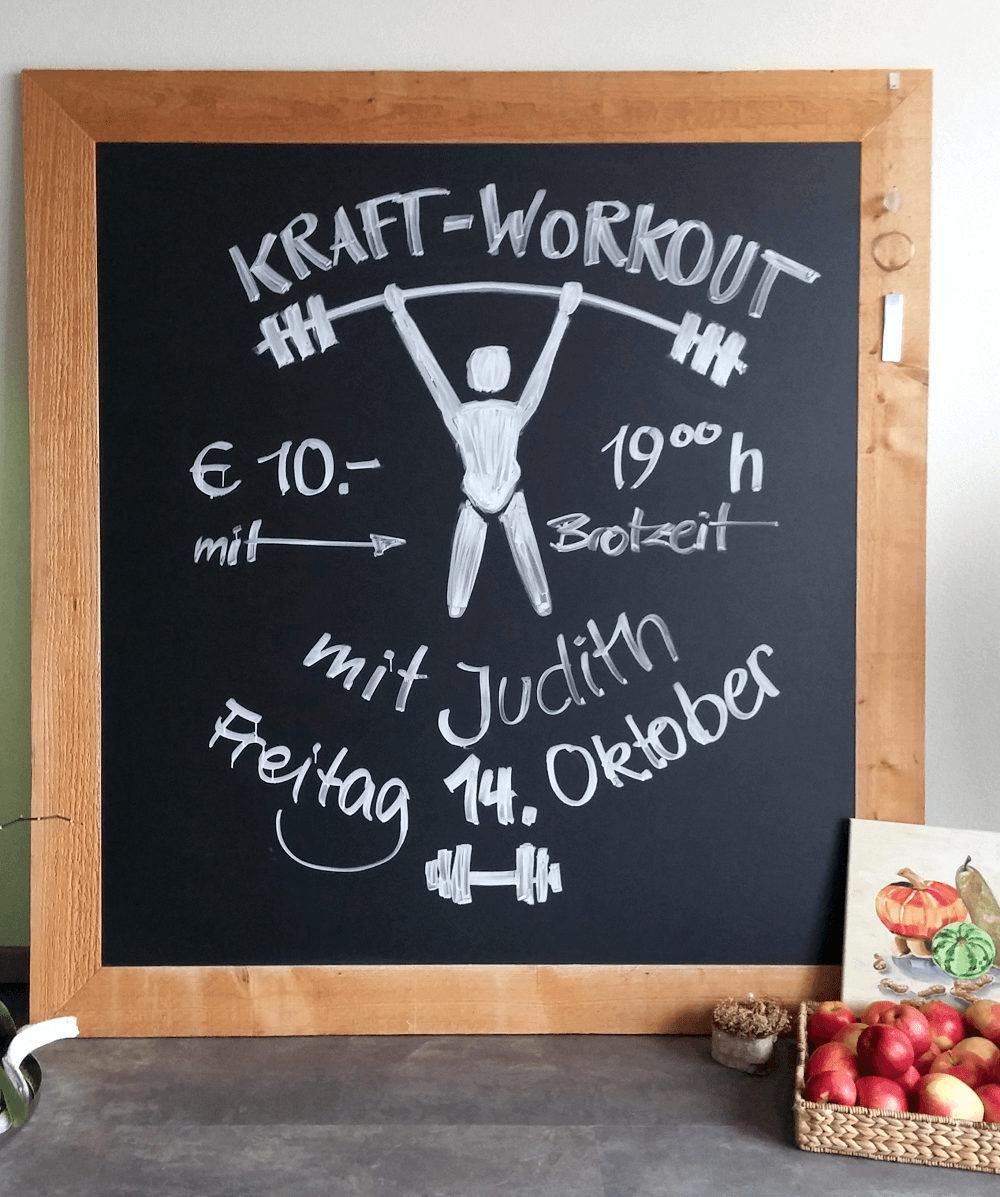 KRAFT-WORKOUT
€ 10.- 19⁰⁰ h
mit Brotzeit
mit Judith
Freitag 14. Oktober